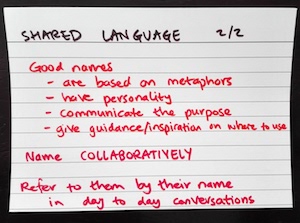 SHARED LANGUAGE 2/2
Good names
- are based on metaphors
- have personality
- communicate the purpose
- give guidance/inspiration on where to use
Name COLLABORATIVELY
Refer to them by their name
in day to day conversations